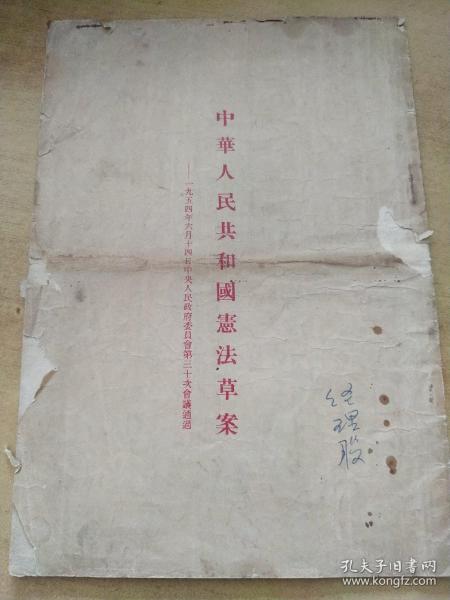 中華人民共和國憲法草案
——一九五四年六月十四日中央人民政府委員會第三十次會議通過
经理股
孔夫子旧书网
www.kongfz.com